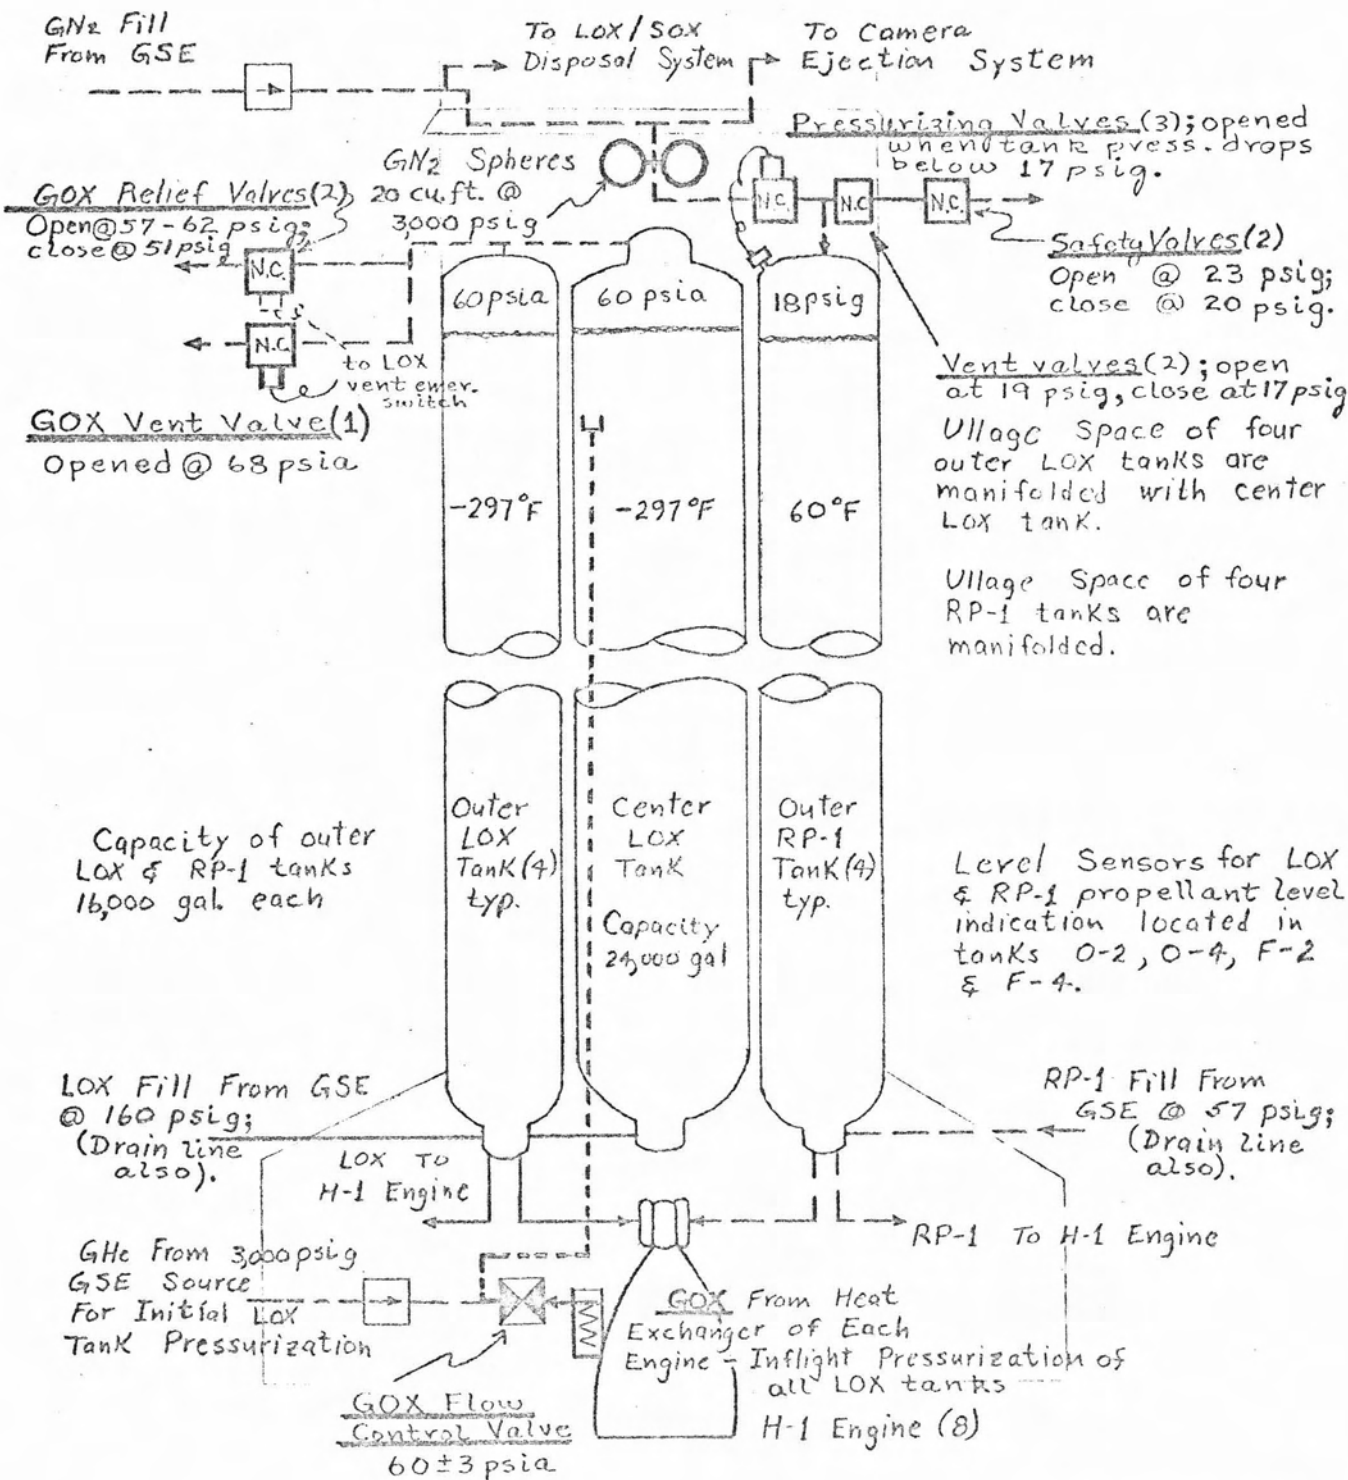 GN2 Fill
From GSE
To LOX/SOX
Disposal System
To Camera
Ejection System
Pressurizing Valves (3); opened
when tank press. drops
below 17 psig.
GN2 Spheres
20 cu.ft. @
3,000 psig
GOX Relief Valves(2)
Open@57-62 psig;
close@51psig
N.C.
N.C.
to LOX
vent emer.
switch
GOX Vent Valve(1)
Opened @ 68 psia
N.C.
N.C
N.C.
Safety Valves(2)
Open @ 23 psig;
close @ 20 psig.
Vent valves(2); open
at 19 psig, close at 17 psig
60 psia
60 psia
18 psig
-297°F
-297°F
60°F
Ullage Space of four
outer LOX tanks are
manifolded with center
LOX tank.
Ullage Space of four
RP-1 tanks are
manifolded.
Capacity of outer
LOX & RP-1 tanks
16,000 gal. each
Outer
LOX
Tank(4)
typ.
Center
LOX
Tank
Capacity
24,000 gal
Outer
RP-1
Tank(4)
typ.
Level Sensors for LOX
& RP-1 propellant level
indication located in
tanks O-2, O-4, F-2
& F-4.
LOX Fill From GSE
@ 160 psig;
(Drain line
also).
RP-1 Fill From
GSE @ 57 psig;
(Drain line
also).
LOX To
H-1 Engine
RP-1 To H-1 Engine
GHe From 3,000 psig
GSE Source
For Initial LOX
Tank Pressurization
GOX From Heat
Exchanger of Each
Engine - Inflight Pressurization of
all LOX tanks
GOX Flow
Control Valve
60±3 psia
H-1 Engine (8)